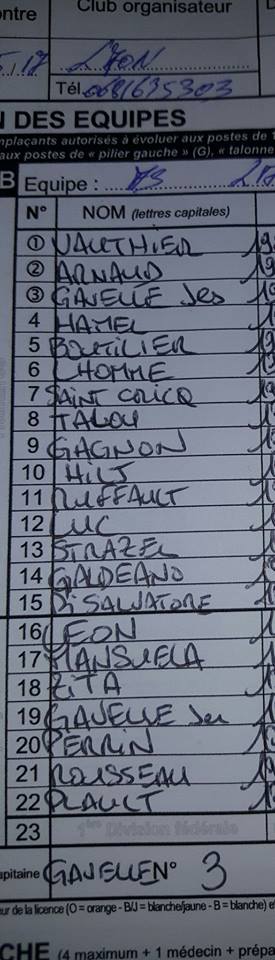 ontre Club organisateur
5/17 LYON
Tél. 0681635303
N DES EQUIPES
mplaçants autorisés à évoluer aux postes de
aux postes de « pilier gauche » (G), « talonne
B Equipe :
N° NOM (lettres capitales)
1 VAUTHIER
2 ARNAUD
3 GAVELLE Jes
4 HAMEL
5 BOUTILIER
6 LHOMME
7 SAINT CRICQ
8 TALOU
9 GAGNON
10 HILT
11 RUFFAULT
12 LUC
13 STRAZEL
14 GALDEANO
15 Di SALVATORE
16 LEON
17 MANSUELA
18 ZITA
19 GAVELLE Jen
20 PERRIN
21 ROUSSEAU
22 PLAULT
23 1ère Division fédérale
apitaine GAVELLE N° 3
eur de la licence (O = orange - B/J = blanche/jaune - B = blanche) et
CHE (4 maximum + 1 médecin + prépa